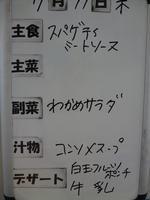 主食 スパゲティ
ミートソース
主菜
副菜 わかめサラダ
汁物 コンソメスープ
デザート 白玉フルーツポンチ
牛乳